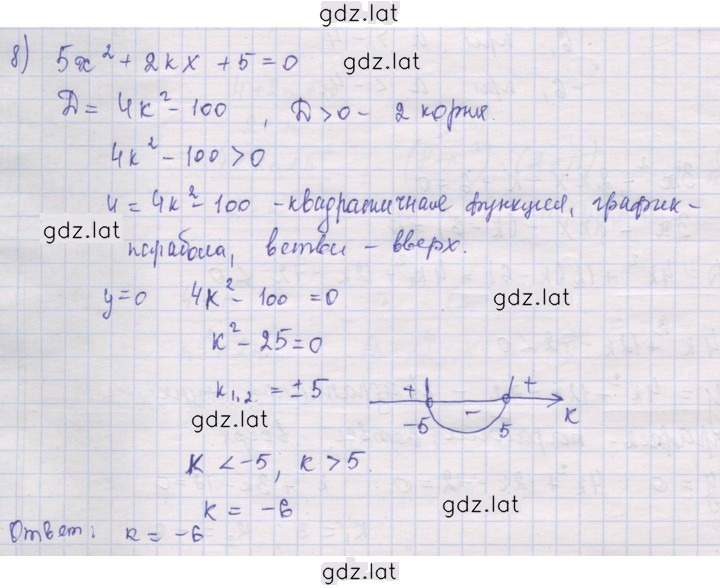 gdz.lat
8) 5x² + 2kx + 5 = 0
gdz.lat
D = 4k² - 100, D > 0 - 2 корня.
4k² - 100 > 0
y = 4k² - 100 - квадратичная функция, график -
gdz.lat
парабола, ветви - вверх.
y = 0 4k² - 100 = 0
gdz.lat
k² - 25 = 0
k₁,₂ = ± 5
+ - +
-5 5 k
gdz.lat
k < -5, k > 5.
k = -6
gdz.lat
Ответ: k = -6
gdz.lat